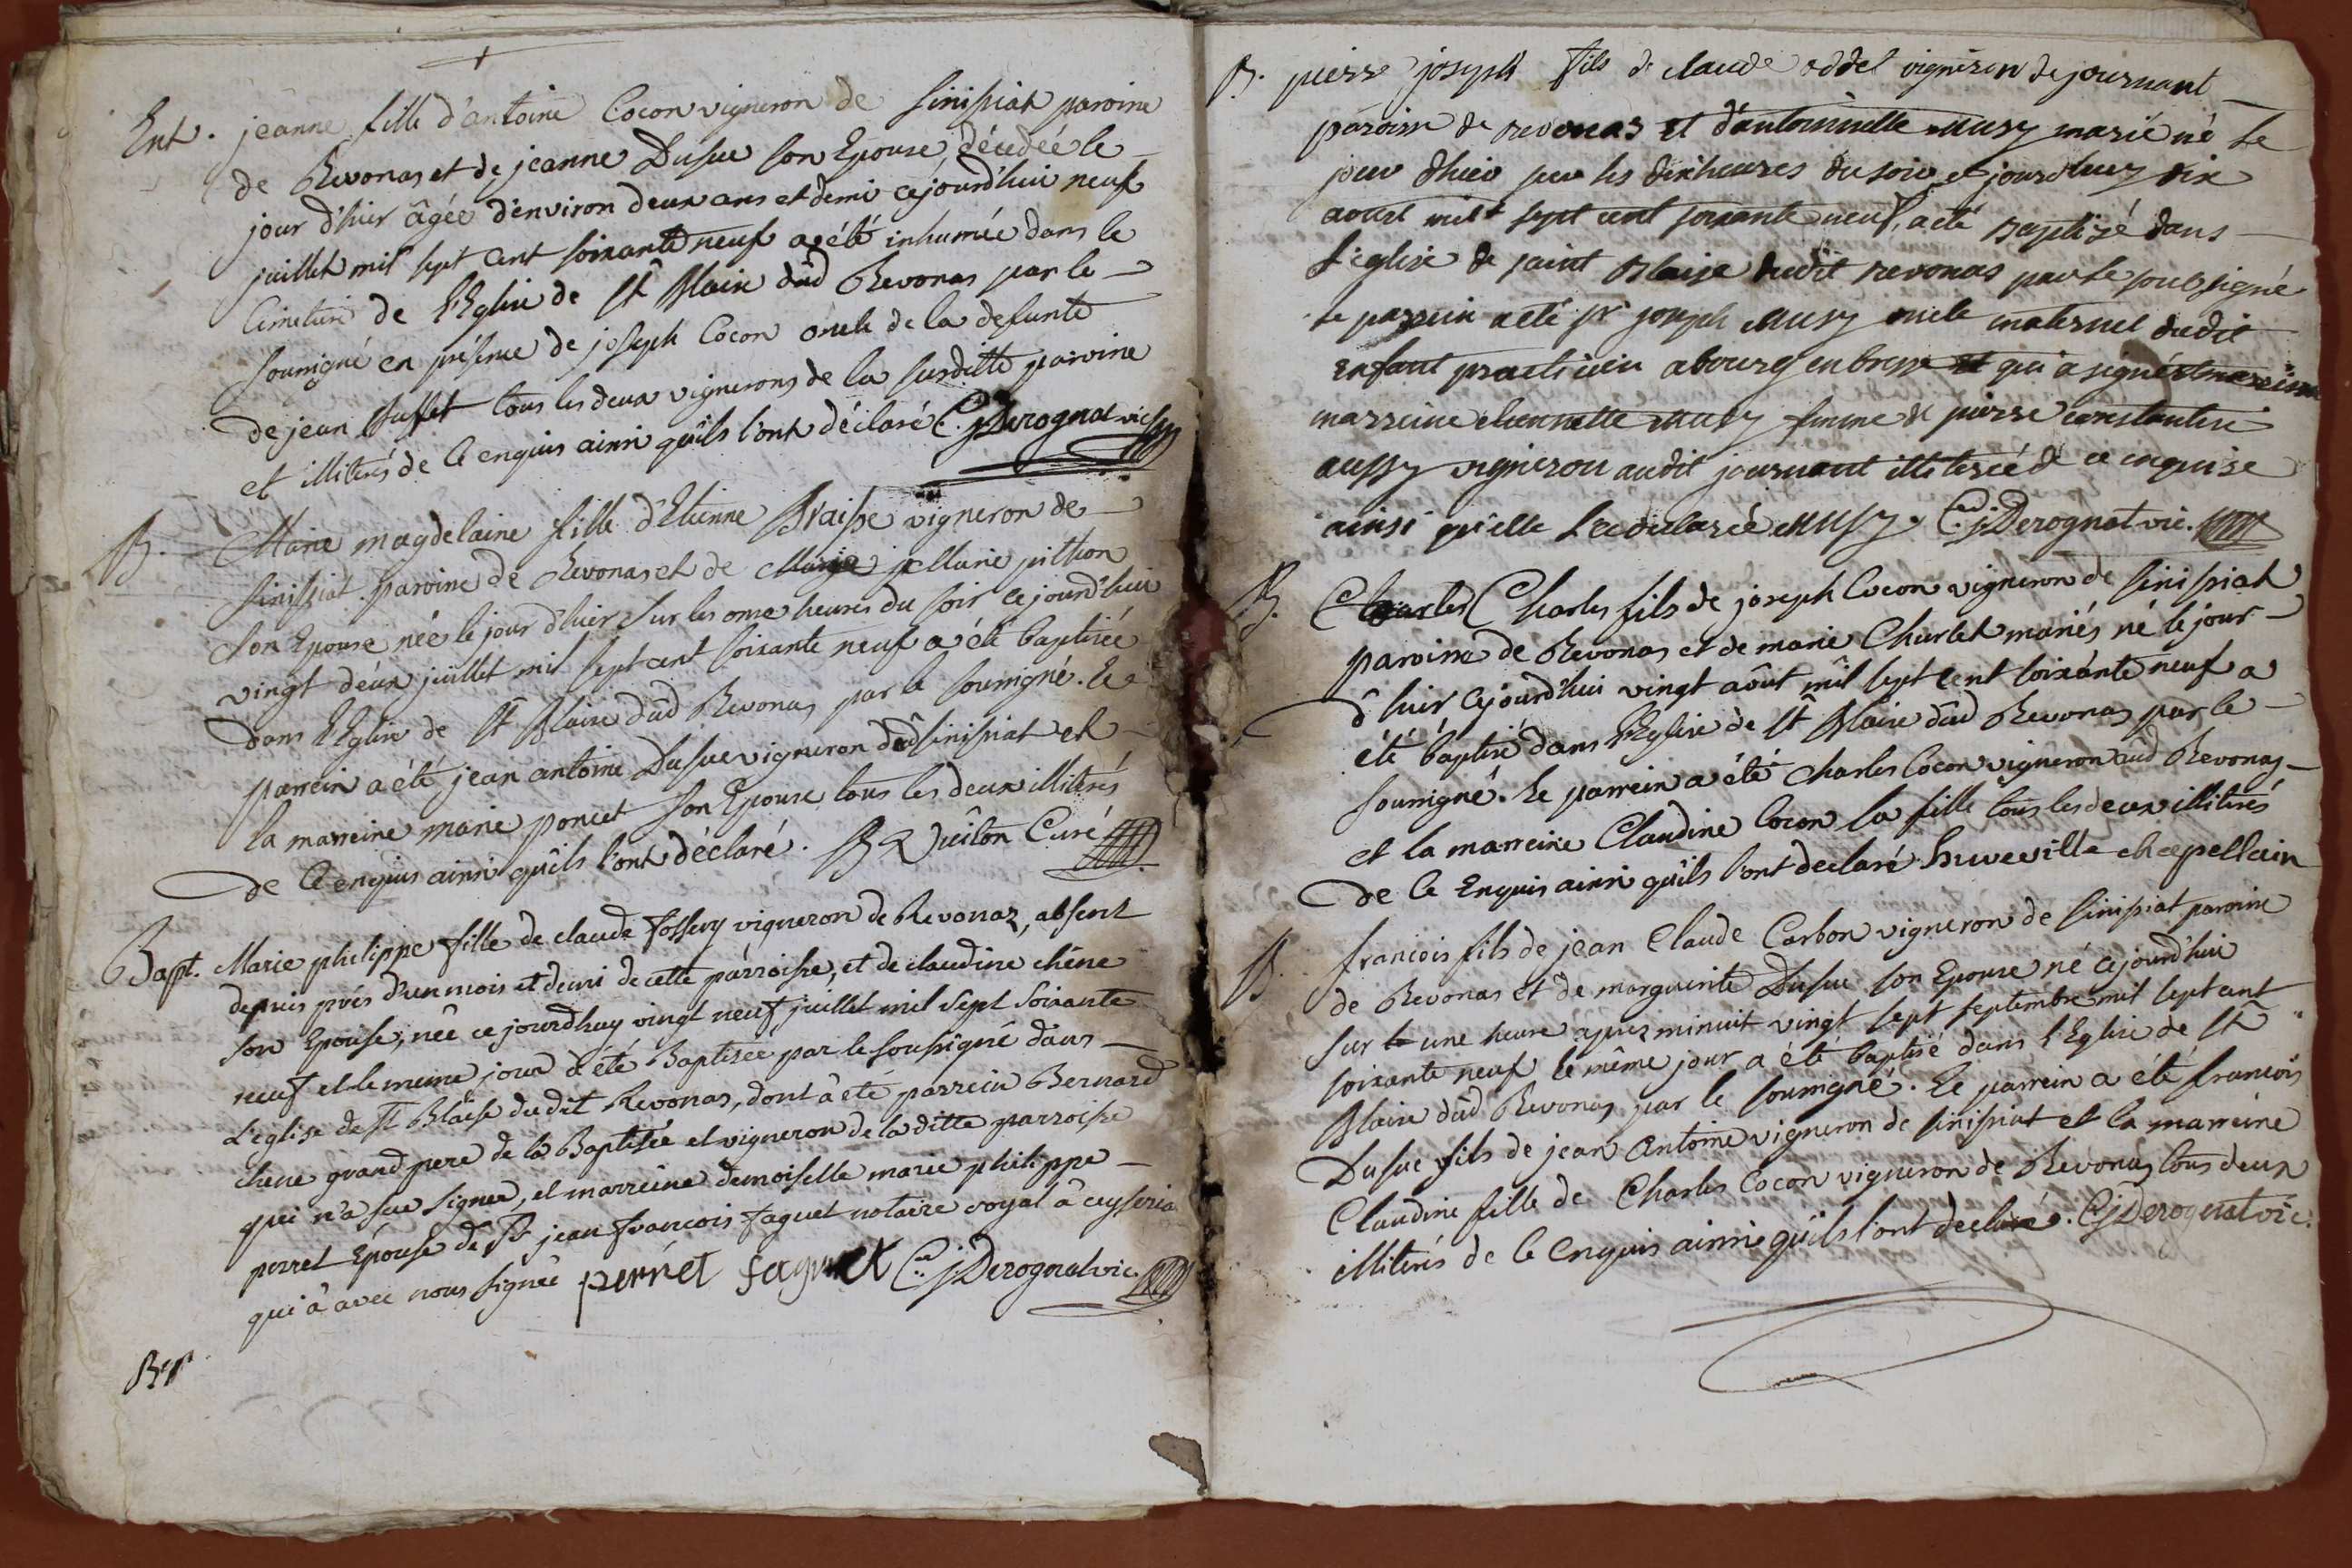 Ent. jeanne fille d'antoine Cocon vigneron de sinissiat paroine
de Revonas et de jeanne Dusue son Epouse, décedéé le
jour d'hier âgée d'environ deux ans et demi cejourd'hui neuf
juillet mil sept cent soixante neuf a été inhumée dans le
Cimetiere de l'Eglise de St Blaise dud Revonas par le
soussigné en présence de joseph Cocon oncle de la defunte
de jean suffet tous les deux vignerons de la susditte paroine
et illiterés de ce enquis ainsi qu'ils l'ont déclaré C. j Derognat vic
B. Marie magdelaine fille d'Etienne Braisse vigneron de
sinissiat paroine de Revonas et de Marie jeMarie pithon
son Epouse née le jour d'hier sur les onze heures du soir cejourd'hui
vingt deux juillet mil sept cent soixante neuf a été baptisée
dans l'Eglise de St Blaise dud Revonas par le soussigné. Le
parrein a été jean antoine Dusue vigneron dud sinissiat et
la marreine marie poncet son Epouse tous les deux illiterés
de ce enquis ainsi qu'ils l'ont déclaré. Curé
Bapt. Marie philippe fille de claude fossery vigneron de Revonaz, absent
depuis prés d'un mois et demi de cette parroisse, et de claudine chêne
son Epouse, née ce jourdhuy vingt neuf juillet mil sept soixante
neuf et le meme jour à été Baptisée par le soussigné dans
L'eglise de St Blaise dudit Revonas, dont à été parrein Bernard
chene grand pere de la Baptisée et vigneron de la ditte parroisse
qui n'a sue signer, et marreine demoiselle marie philippe
perret Epouse de Sr jean francois faguet notaire royal à ceyseria
qui à avec nous signée perret faguet C. j Derognat vic.
Bap
B. pierre joseph fils de claude oddet vigneron de journant
paroisse de revonas et d'antoinette musy marié né le
jour dhier sur les dix heures du soir et jourdhuy dix
aoust mil sept cent soixante neuf, a été baptizé dans
l'eglise de saint Blaise dudit revonas par le soubsigné
le parrein a été sr joseph musy oncle maternel dudit
enfant practicien a bourg en bresse et qui a signé et marreine
marreine etiennette musy femme de pierre constantin
aussy vigneron audit journant illiterée de ce enquise
ainsi qu'elle l'a declarée musy. C. j. Derognat vic.
B. Charles Charles fils de joseph Cocon vigneron de sinissiat
paroisse de Revonas et de marie Charlet mariés né le jour
d'hier cejourd'hui vingt août mil sept cent soixante neuf a
été baptisé dans l'Eglise de St Blaise dud Revonas par le
soussigné. Le parrein a été Charles Cocon vigneron aud Revonas
et la marreine Claudine Cocon sa fille tous les deux illiterés
de ce Enquis ainsi qu'ils l'ont declaré huueville chapellain
B. francois fils de jean Claude Carbon vigneron de sinissiat paroine
de Revonas et de marguerite Dusue son Epouse né cejourd'hui
sur le une heure apres minuit vingt sept septembre mil sept cent
soixante neuf le même jour a été baptisé dans l'Eglise de St
Blaise dud Revonas par le soussigné. Le parrein a été francois
Dusue fils de jean Antoine vigneron de sinissiat et la marreine
Claudine fille de Charles Cocon vigneron de Revonas tous deux
illiterés de ce enquis ainsi qu'ils l'ont declaré. C j Derognat vic.